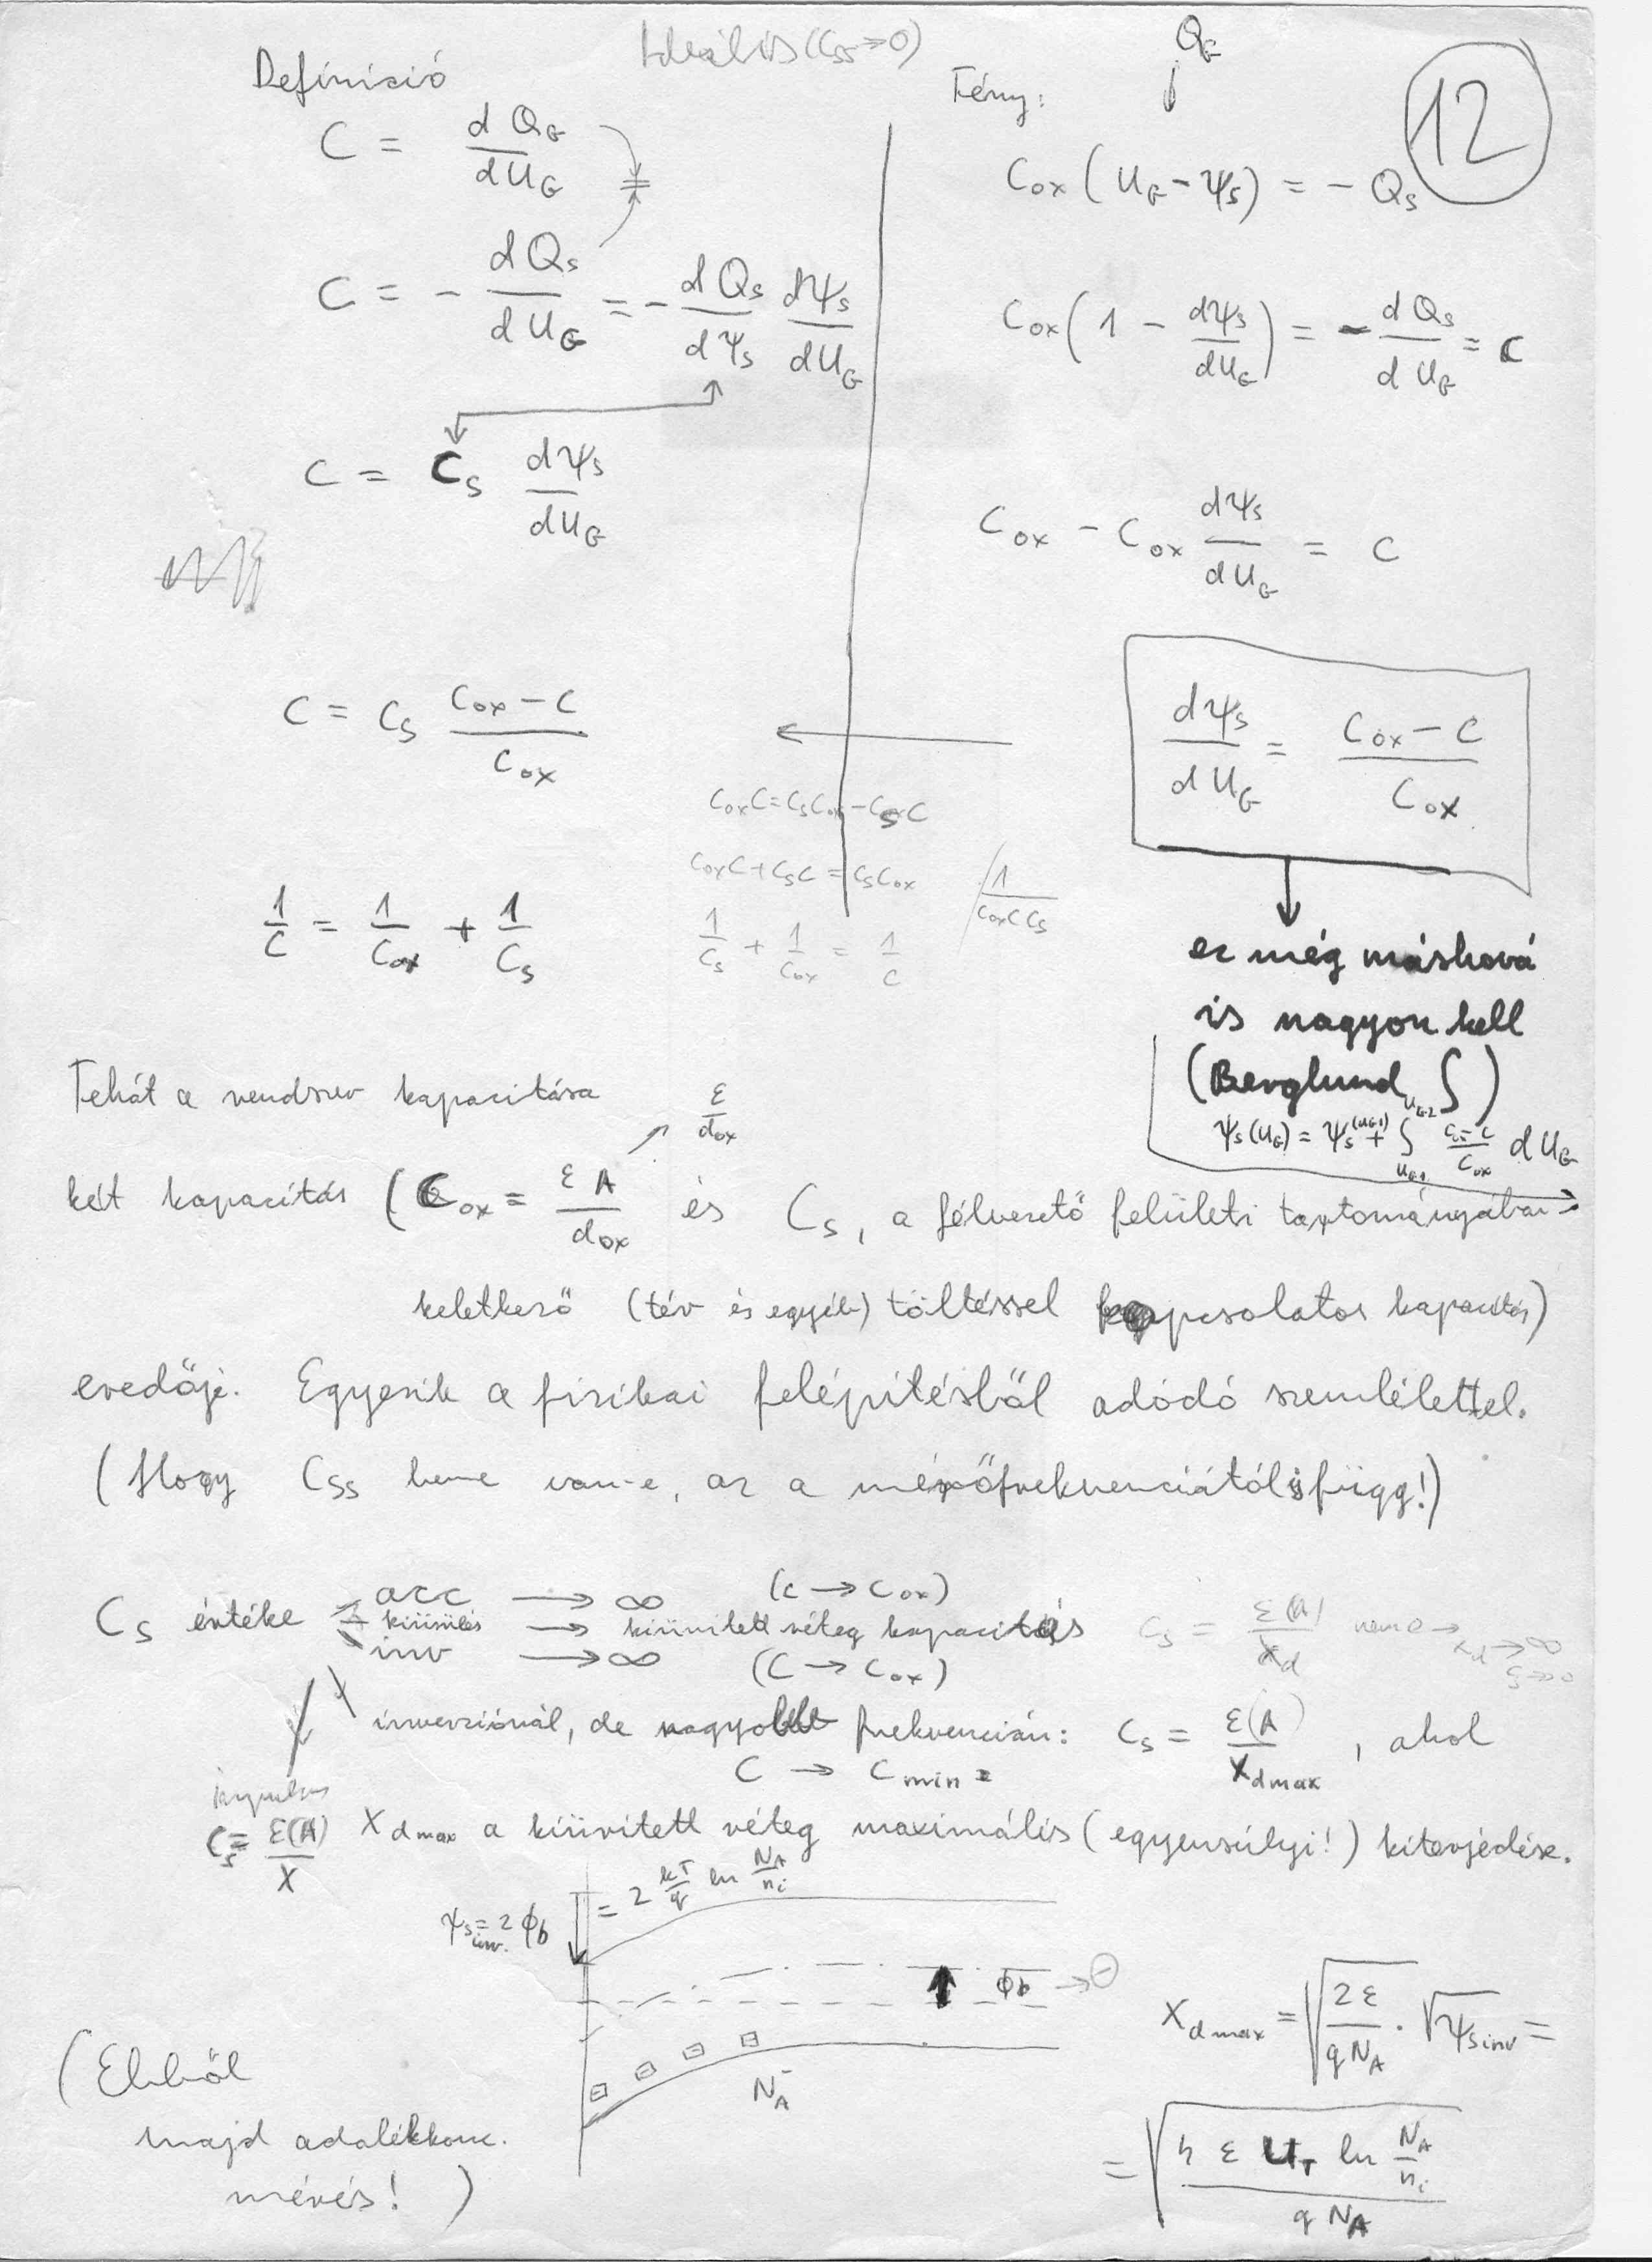 Ideális (Css→0)
Definíció
C = dQG/dUG
C = - dQs/dUG = - dQs/dψs dψs/dUG
C = Cs dψs/dUG
C = Cs (Cox - C)/Cox
1/C = 1/Cox + 1/Cs
QG
Tény:
12
Cox (UG - ψs) = - Qs
Cox (1 - dψs/dUG) = - dQs/dUG = C
Cox - Cox dψs/dUG = C
dψs/dUG = (Cox - C)/Cox
CoxC = CsCox - CsC
CoxC + CsC = CsCox / 1/(CoxCCs)
1/Cs + 1/Cox = 1/C
ez még máshová
is nagyon kell
(Berglund ∫)
ψs(UG) = ψs(UG1) + ∫UG1UG2 (Cox - C)/Cox dUG
Tehát a rendszer kapacitása
ε/dox
két kapacitás (Cox = εA/dox és Cs, a félvezető felületi tartományában
keletkező (tér és egyéb) töltéssel kapcsolatos kapacitás)
eredője. Egyezik a fizikai felépítésből adódó szemlélettel.
(Hogy Css benne van-e, az a mérőfrekvenciától is függ!)
Cs értéke
acc → ∞ (C → Cox)
kiürülés → kiürített réteg kapacitás Cs = ε(A)/xd nem 0 → xd → ∞ Cs → 0
inv → ∞ (C → Cox)
inverziónál, de nagyobb frekvencián: Cs = ε(A)/Xdmax , ahol
C → Cmin =
impulzus
Cs = ε(A)/X
Xdmax a kiürített réteg maximális (egyensúlyi!) kiterjedése.
ψs inv. = 2ϕb = 2 kT/q ln NA/ni
ϕb → ⊖
NA-
Xdmax = √(2ε/qNA) · √ψsinv =
= √(4 ε UT ln NA/ni / qNA)
(Ebből
majd adalékkonc.
mérés! )